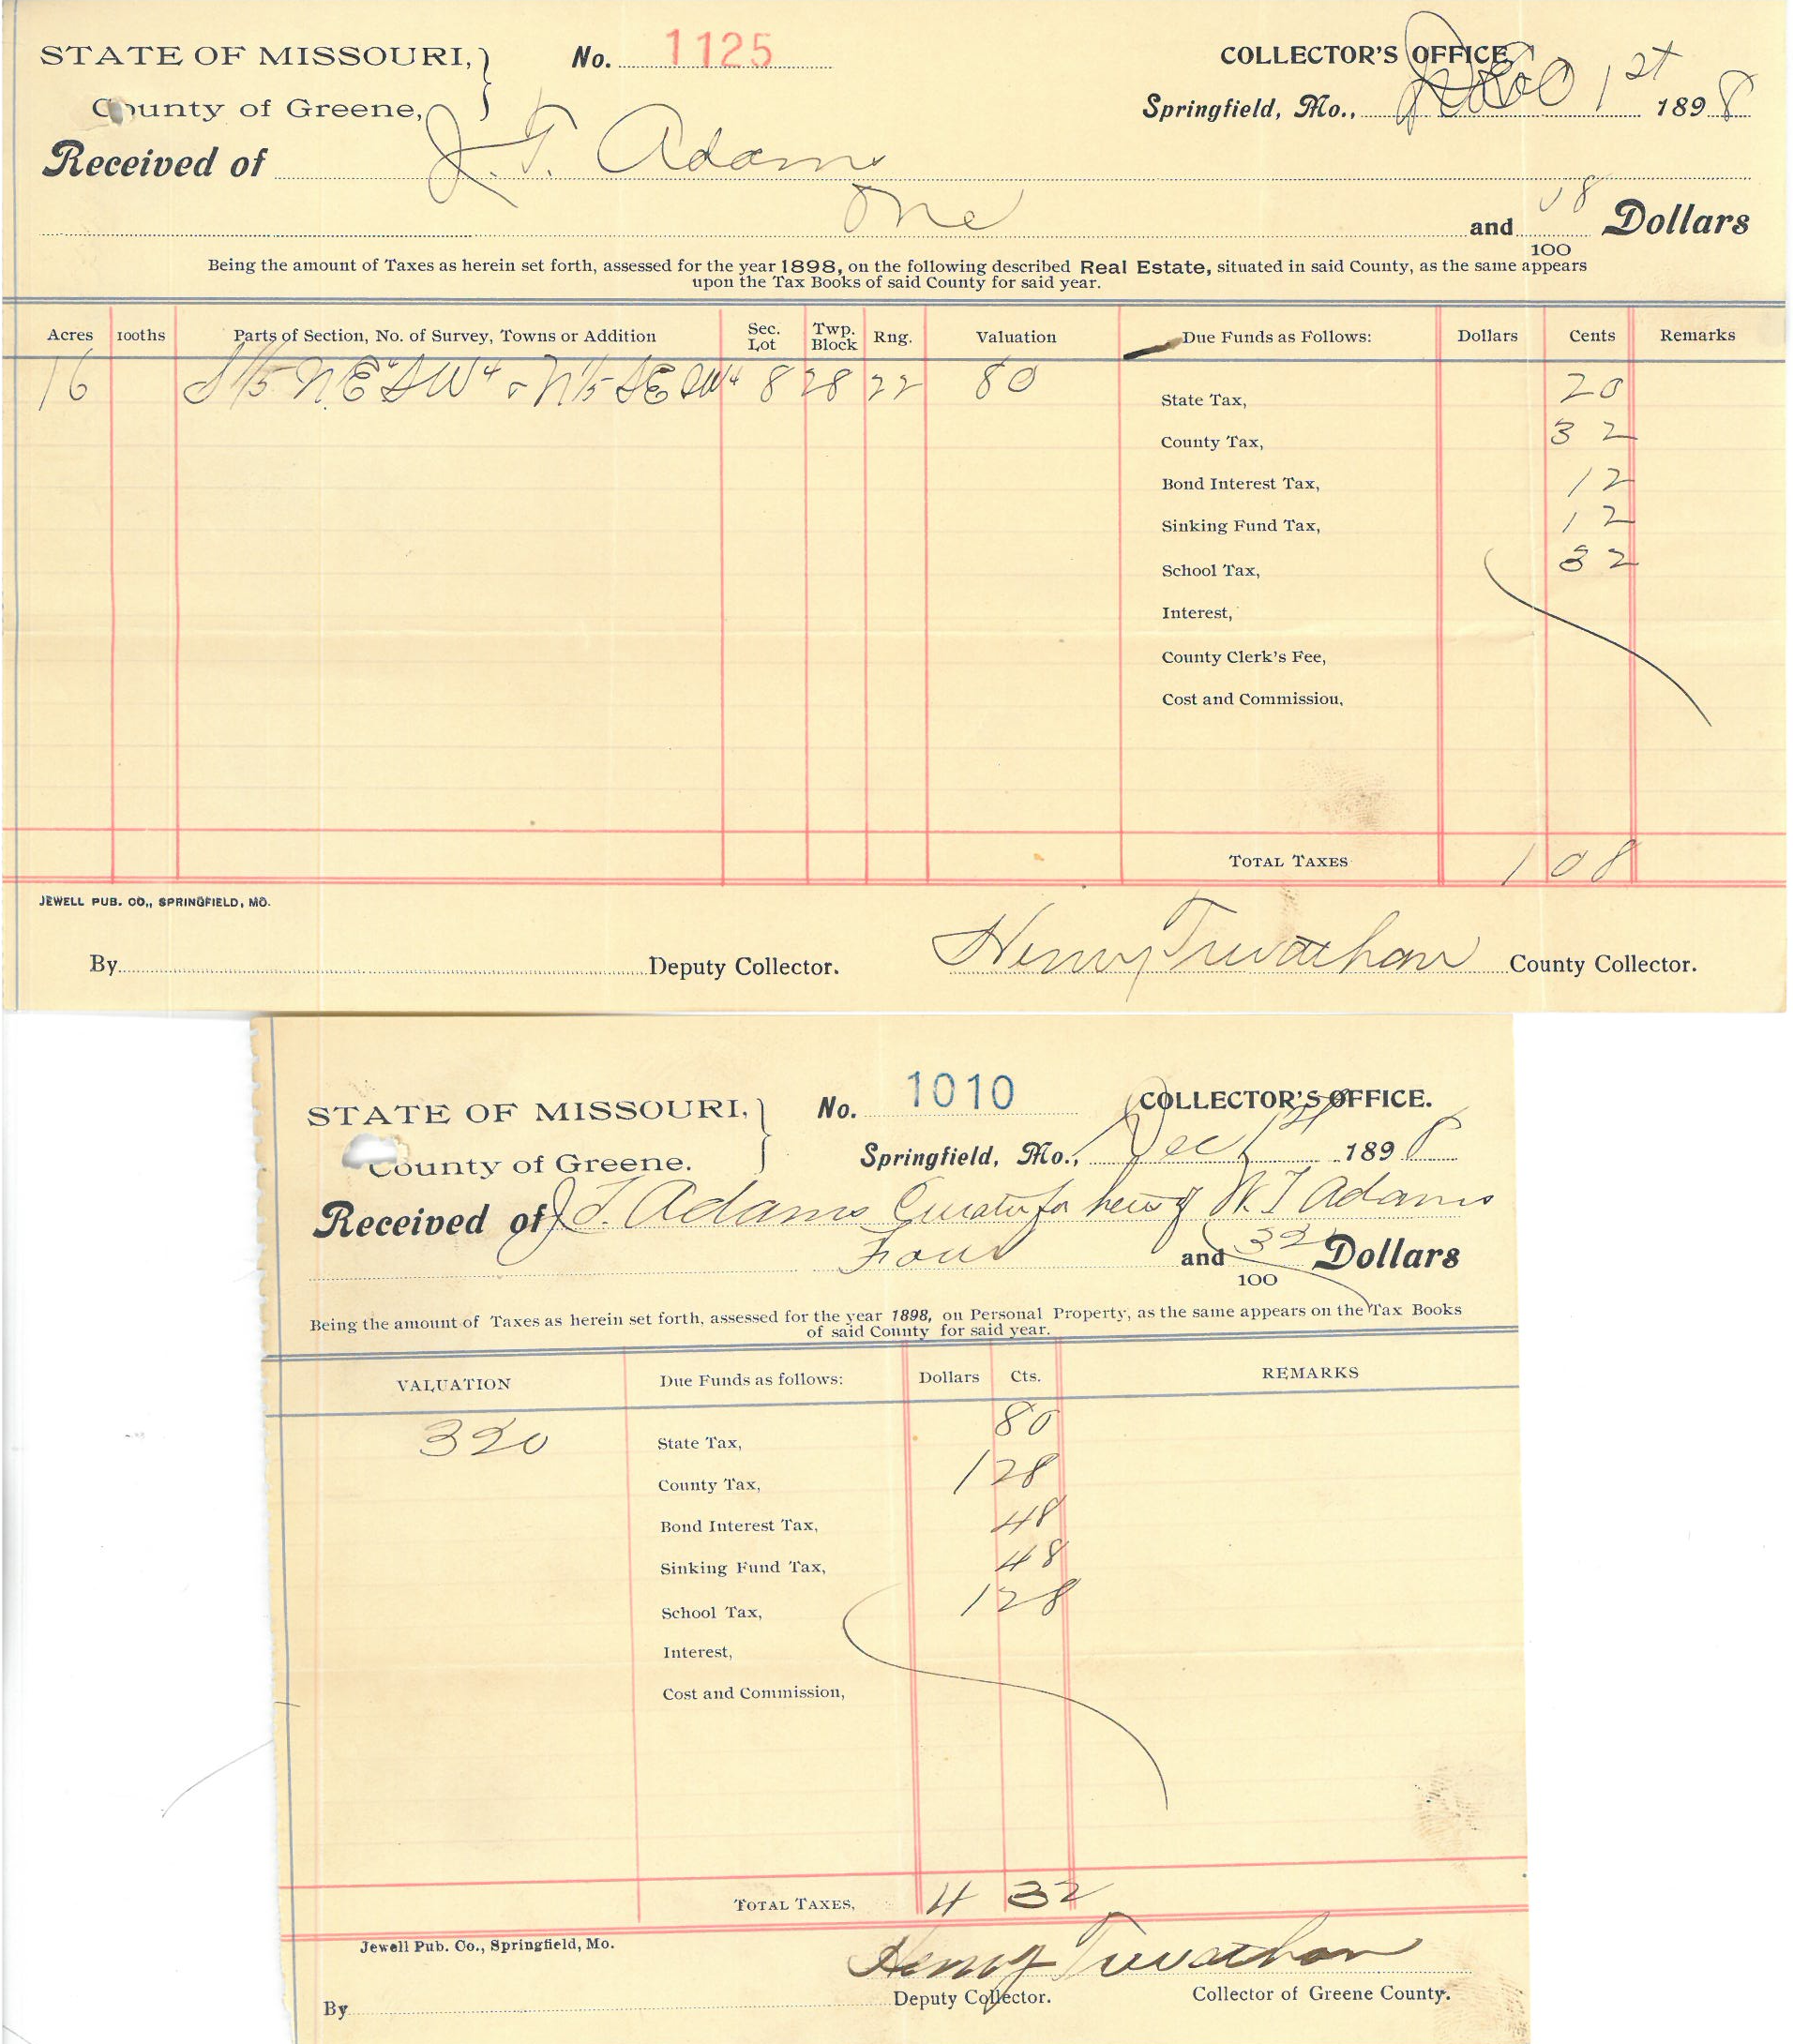 STATE OF MISSOURI, } No. 1125 COLLECTOR'S OFFICE,
County of Greene, Springfield, Mo., Dec 1st 1898
Received of J. T. Adams
One and 08/100 Dollars
Being the amount of Taxes as herein set forth, assessed for the year 1898, on the following described Real Estate, situated in said County, as the same appears
upon the Tax Books of said County for said year.
Acres 100ths Parts of Section, No. of Survey, Towns or Addition Sec. Lot Twp. Block Rng. Valuation Due Funds as Follows: Dollars Cents Remarks
16 S 1/5 N.E 4 SW 4 & N 1/5 SE SW 4 8 28 22 80
State Tax, 20
County Tax, 32
Bond Interest Tax, 12
Sinking Fund Tax, 12
School Tax, 32
Interest,
County Clerk's Fee,
Cost and Commission,
TOTAL TAXES 1 08
JEWELL PUB. CO., SPRINGFIELD, MO.
By Deputy Collector. Henry Trevathan County Collector.
STATE OF MISSOURI, } No. 1010 COLLECTOR'S OFFICE.
County of Greene. Springfield, Mo., Dec 1st 1898
Received of J T. Adams Curator for heirs of W. T Adams
Four and 32/100 Dollars
Being the amount of Taxes as herein set forth, assessed for the year 1898, on Personal Property, as the same appears on the Tax Books
of said County for said year.
VALUATION Due Funds as follows: Dollars Cts. REMARKS
320 State Tax, 80
County Tax, 1 28
Bond Interest Tax, 48
Sinking Fund Tax, 48
School Tax, 1 28
Interest,
Cost and Commission,
TOTAL TAXES, 4 32
Jewell Pub. Co., Springfield, Mo.
Henry Trevathan
By Deputy Collector. Collector of Greene County.